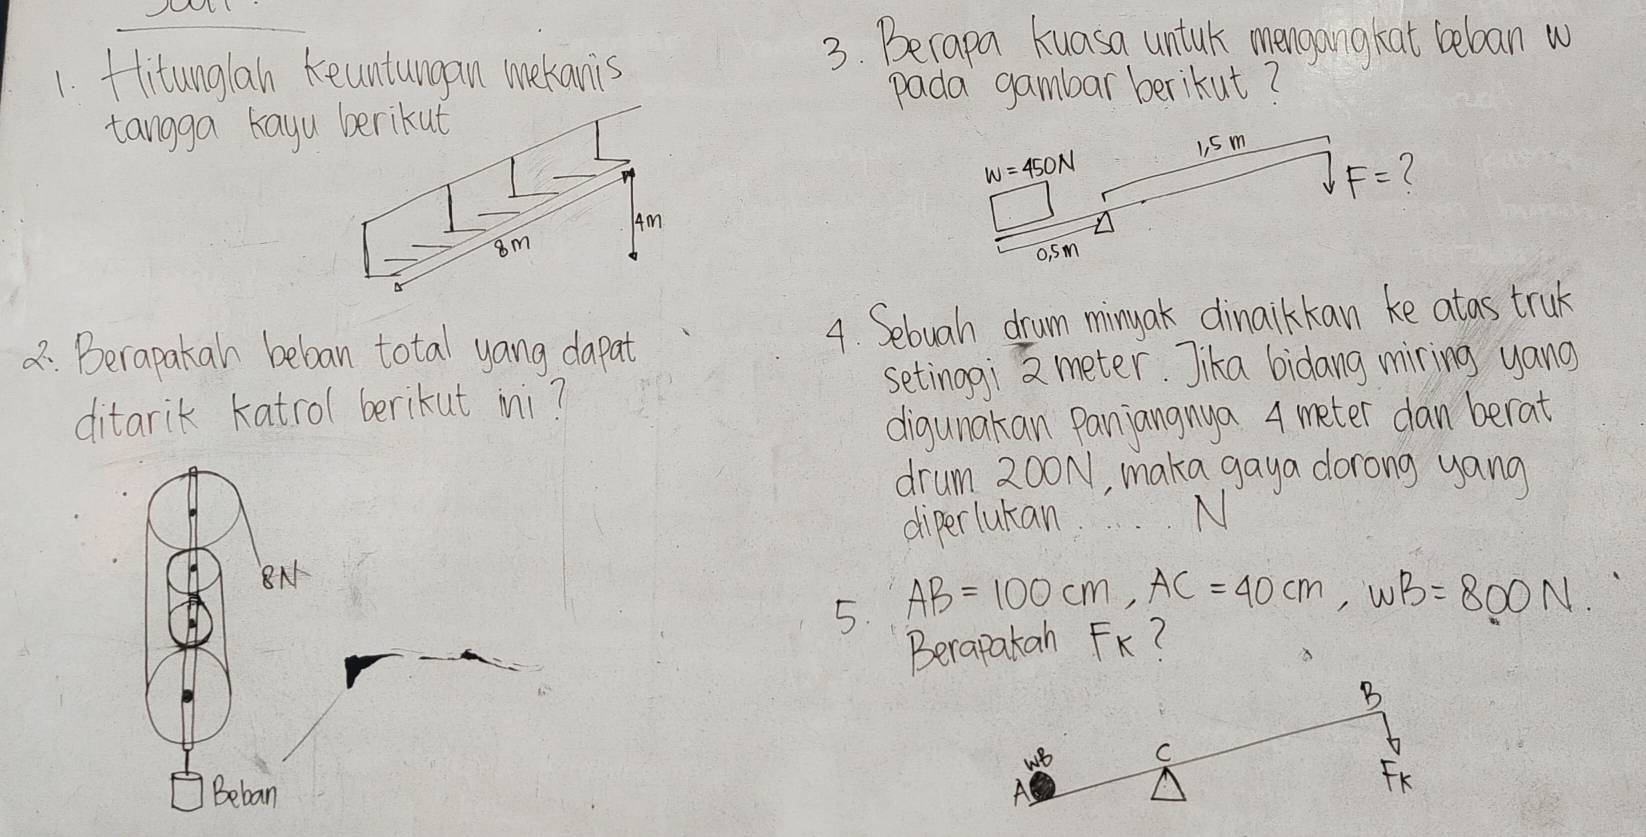 1. Hitunglah keuntungan mekanis
tangga kayu berikut
8m
4m
2. Berapakah beban total yang dapat
ditarik katrol berikut ini?
8N
Beban
3. Berapa kuasa untuk mengangkat beban w
pada gambar berikut?
W=450N
1,5 m
F=?
0,5m
4. Sebuah drum minyak dinaikkan ke atas truk
setinggi 2 meter. Jika bidang miring yang
digunakan Panjangnya 4 meter dan berat
drum 200N, maka gaya dorong yang
diperlukan ..... N
5. AB = 100 cm, AC = 40 cm, WB = 800 N.
Berapakah FK?
B
WB
C
A
FK